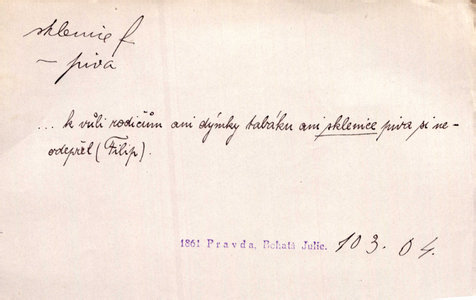 sklenice f
– piva
... k vůli rodičům ani dýmky tabáku ani sklenice piva si ne-
odepřel (Filip).
1861 Pravda, Bohatá Julie. 103. 04.